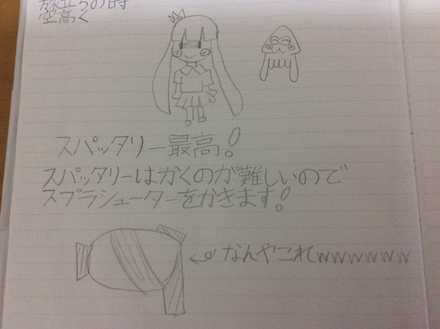 の時
空高く
スパッタリー最高!
スパッタリーはかくのが難しいので
スプラシューターをかきます!
なんやこれwwwwwww